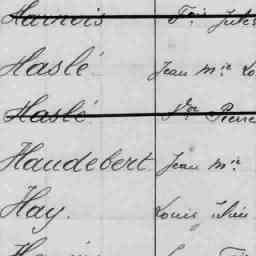 Harnois Fois Jules
Haslé Jean Mie
Haslé Vor Pierre
Haudebert Jean Mie
Hay. Louis Julien